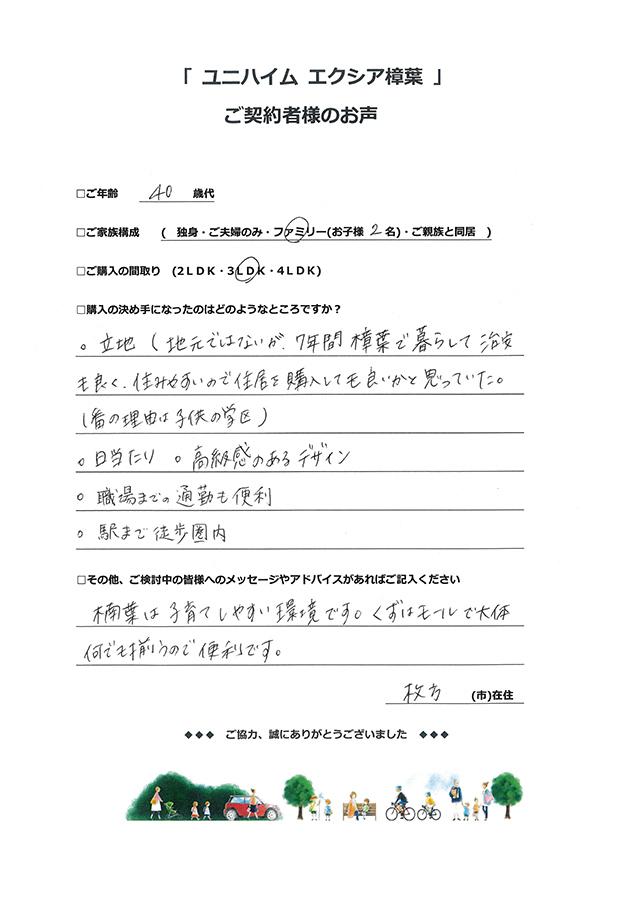 「 ユニハイム エクシア樟葉 」
ご契約者様のお声
□ご年齢 40 歳代
□ご家族構成 ( 独身・ご夫婦のみ・ファミリー(お子様 2 名)・ご親族と同居 )
□ご購入の間取り (2LDK・3LDK・4LDK)
□購入の決め手になったのはどのようなところですか？
○ 立地 ( 地元ではないが、7年間 樟葉で暮らして 治安
も良く、住みやすいので住居を購入しても良いかと思っていた。
1番の理由は子供の学区 )
○ 日当たり ○ 高級感のあるデザイン
○ 職場までの通勤も便利
○ 駅まで徒歩圏内
□その他、ご検討中の皆様へのメッセージやアドバイスがあればご記入ください
楠葉は子育てしやすい環境です。くずはモールで大体
何でも揃うので便利です。
枚方 (市)在住
◆◆◆ ご協力、誠にありがとうございました ◆◆◆